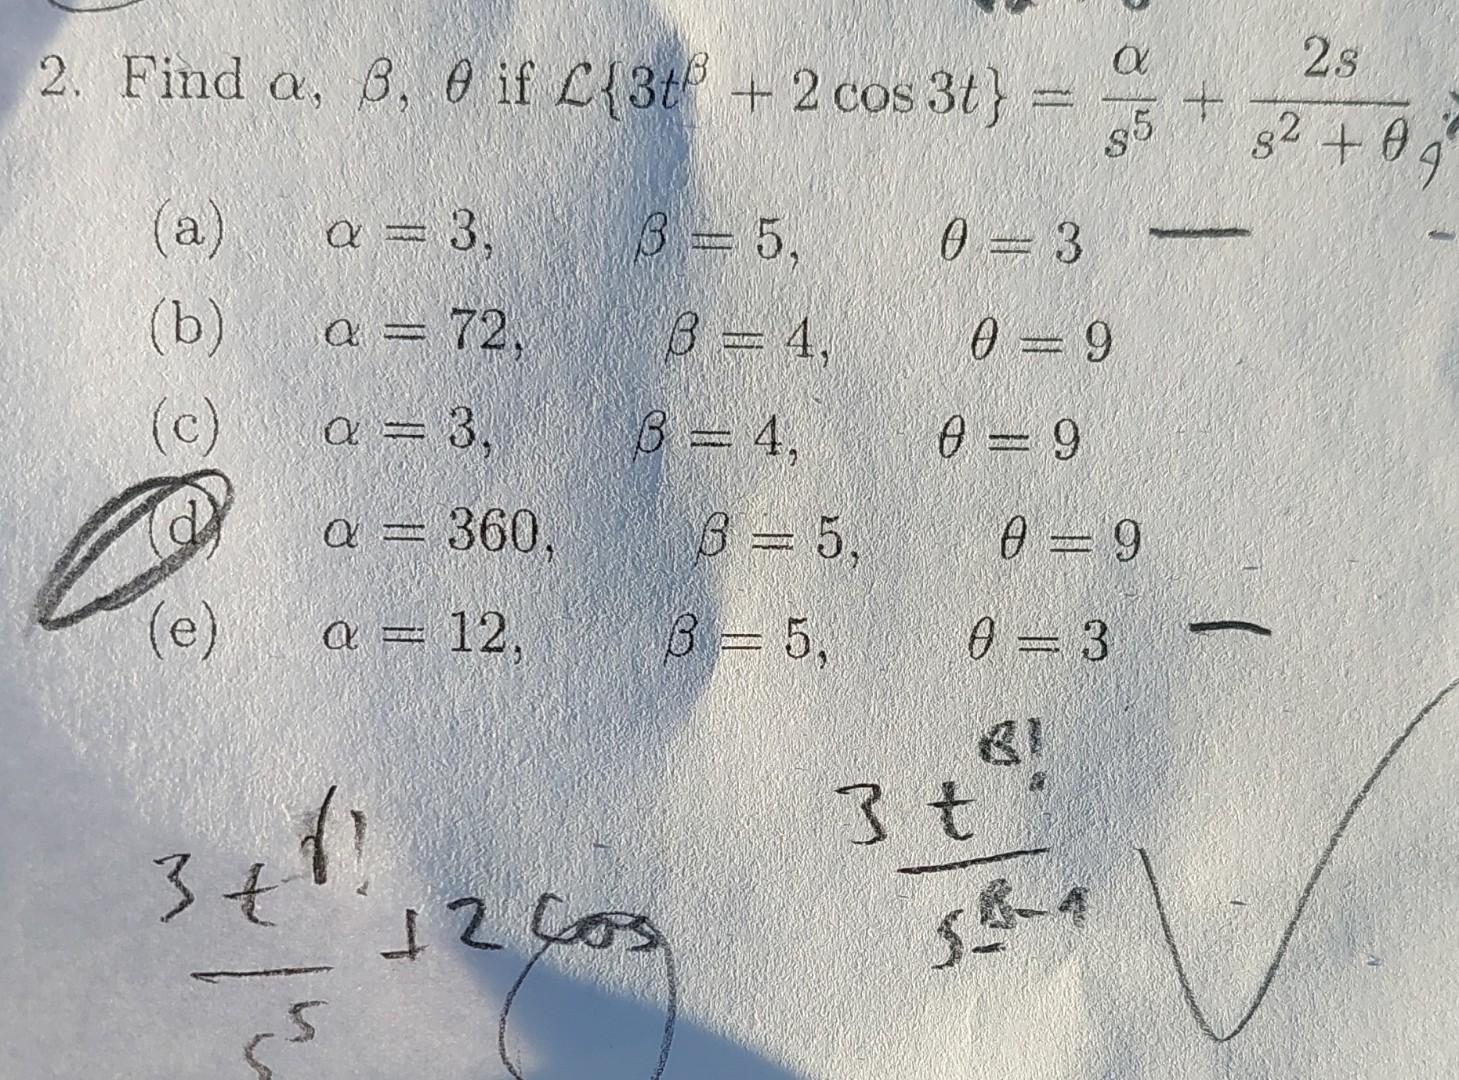 2. Find α, β, θ if ℒ{3t^β + 2 cos 3t} = α/s^5 + 2s/(s^2 + θ) 9
(a) α = 3, β = 5, θ = 3 —
(b) α = 72, β = 4, θ = 9
(c) α = 3, β = 4, θ = 9
(d) α = 360, β = 5, θ = 9
(e) α = 12, β = 5, θ = 3 —
3 t^β! / s^β-1
3 t ! / s^5 + 2 cos